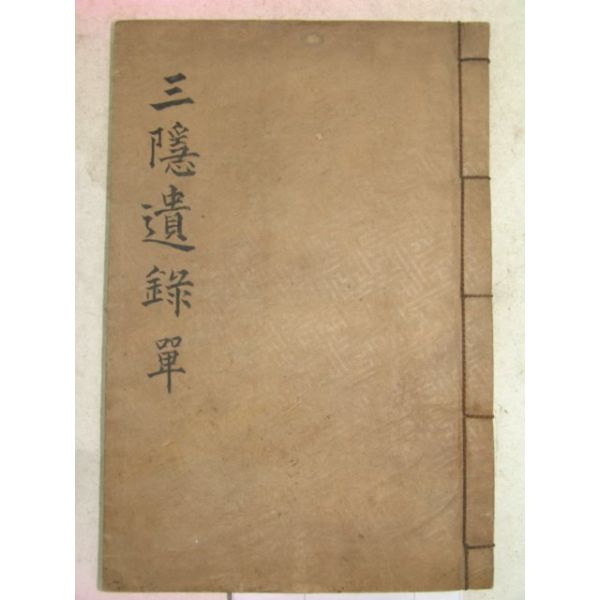 三隱遺錄 單